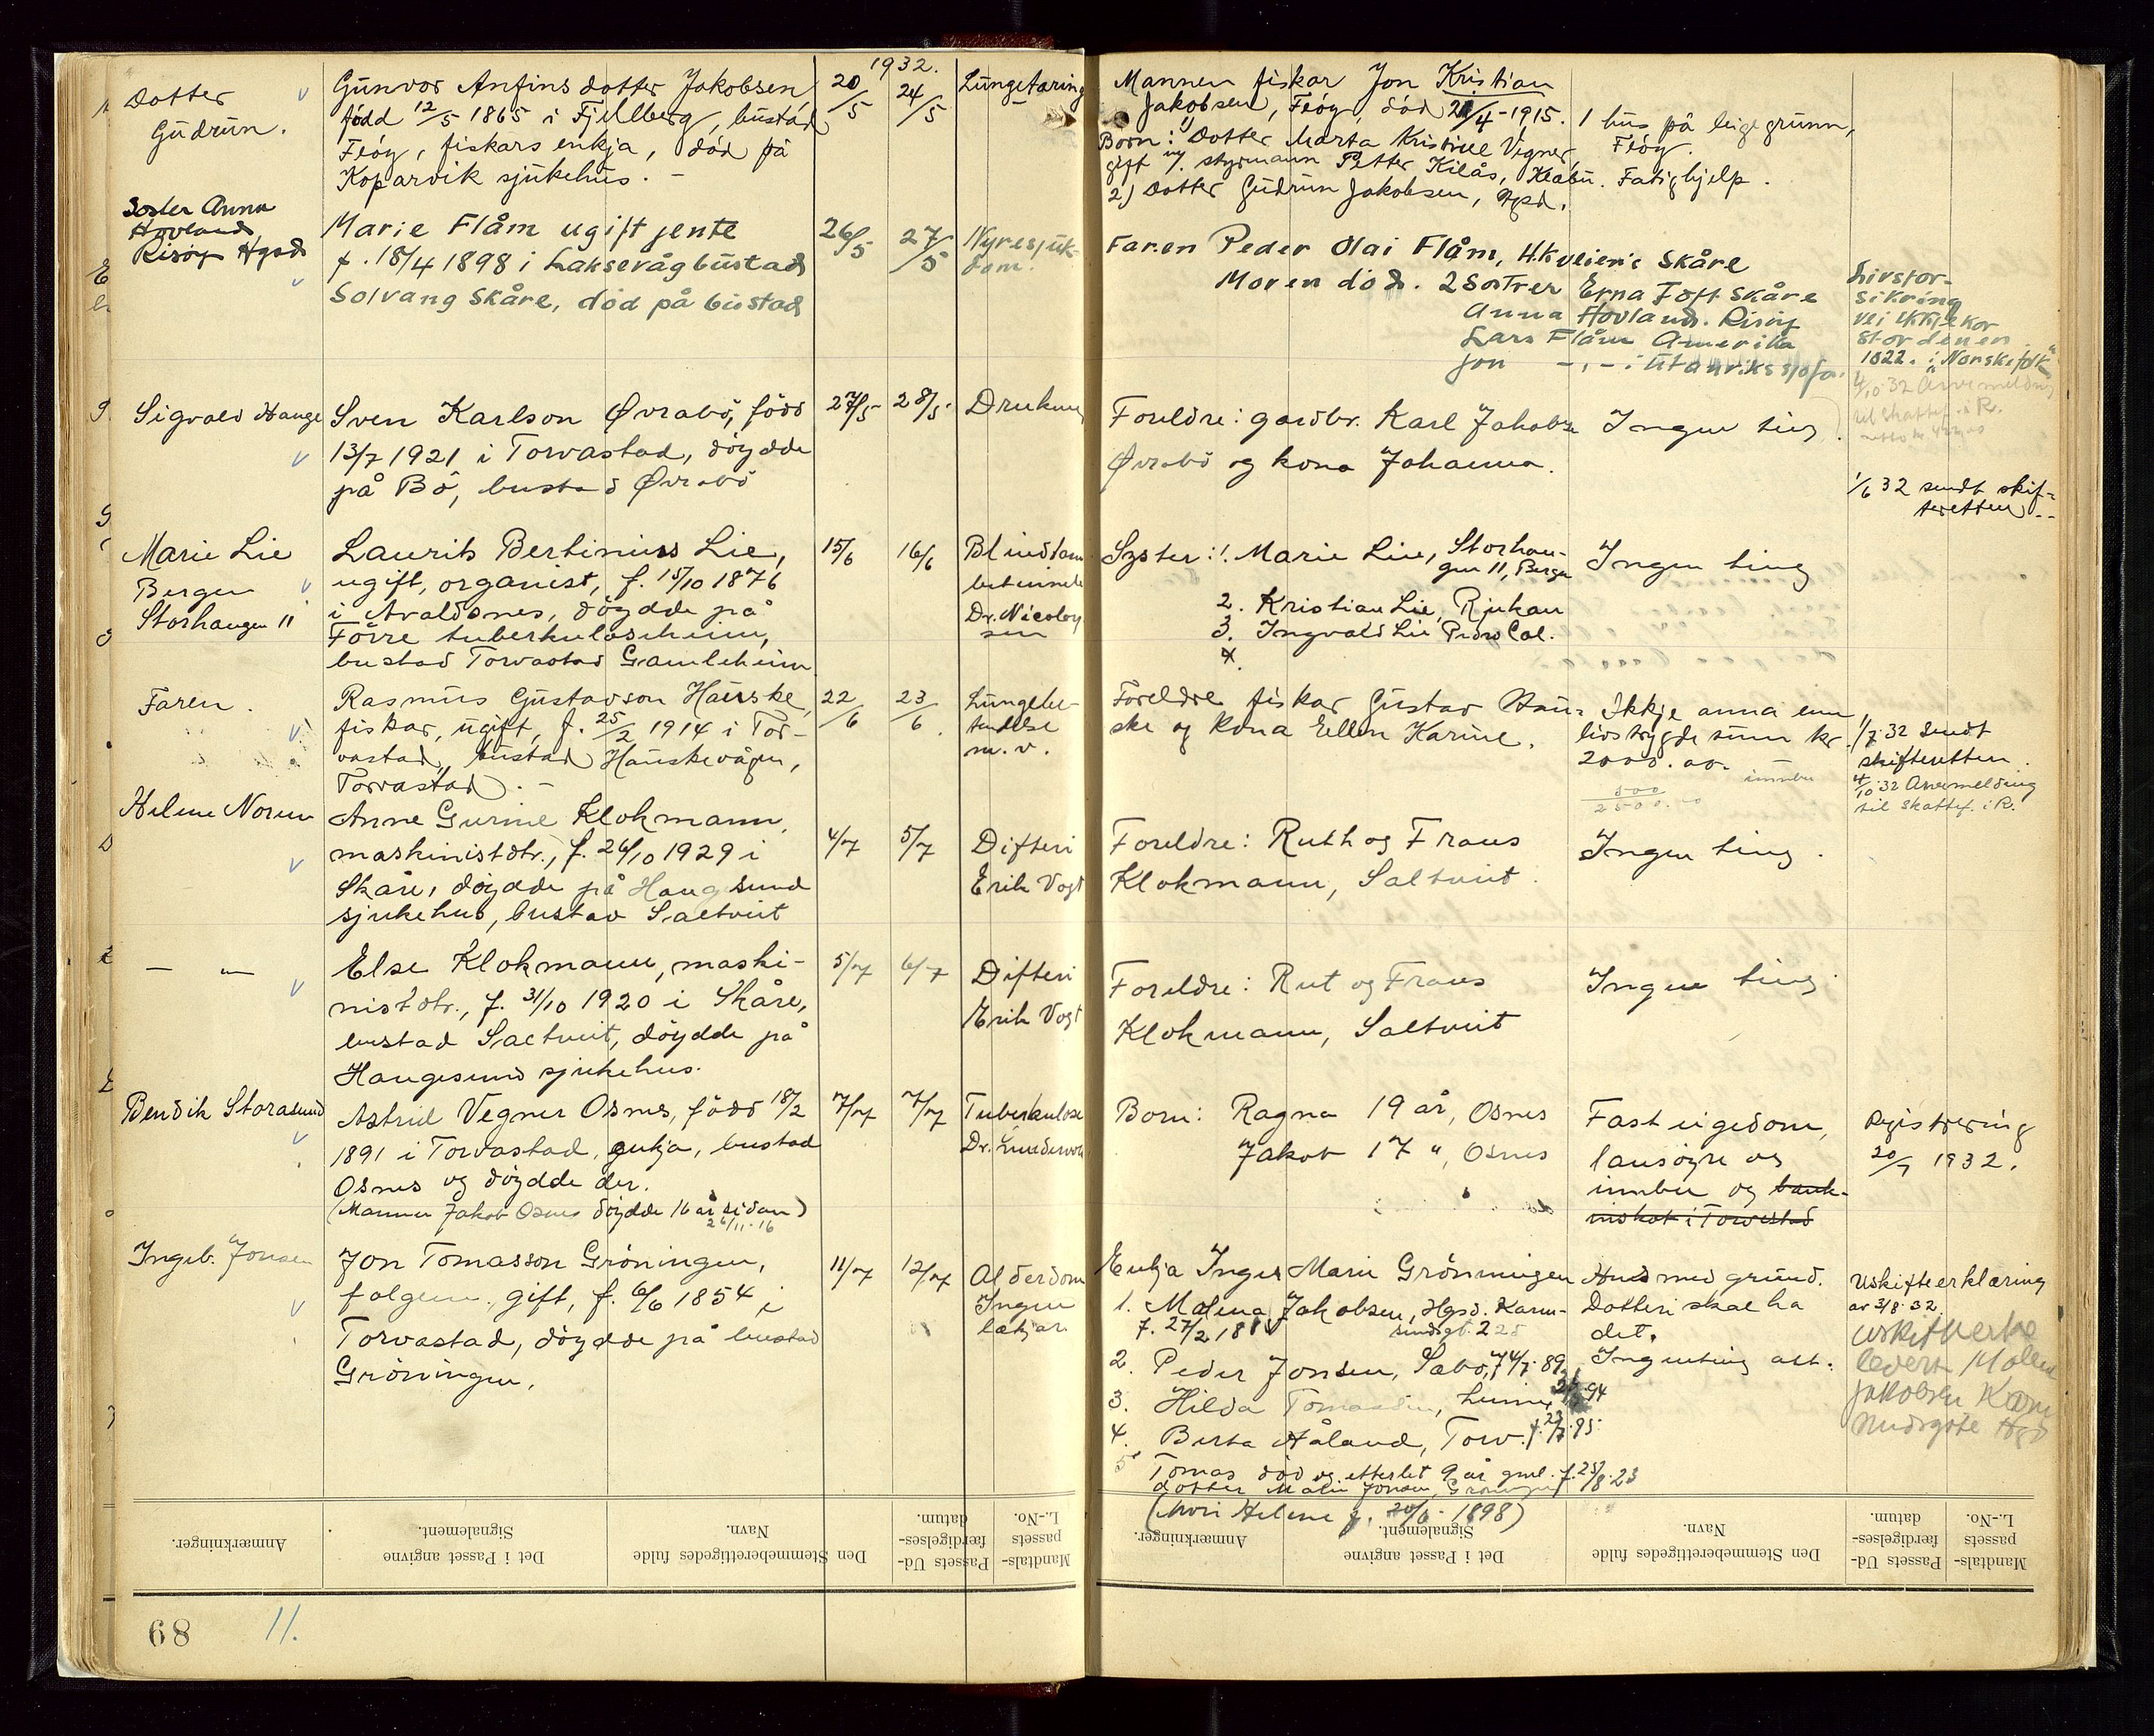 1932.
Dotter
Gudrun.
Gunvor Anfinsdotter Jakobsen
född 12/5 1865 i Fjellberg, bustad
Feöy, fiskars enkja, död på
Koparvik sjukehus. –
20/5
24/5
Lungetæring
Mannen fiskar Jon Kristian
Jakobsen, Feöy, död 21/4-1915.
Born: 1) Dotter Marta Kristine Vegner,
gift m/ styrmann Petter Kilås, Klæbu.
2) Dotter Gudrun Jakobsen, Hgsd.
1 hus på leigegrunn,
Feöy.
Fatighjelp.
Soster Anna
Hovland
Risöy Hgsd
Marie Flåm ugift jente
f. 18/4 1898 i Laksevåg bustad
Solvang Skåre, död på bustad
26/5
27/5
Nyresjuk-
dom.
Faren Peder Olai Flåm, H.kveien i Skåre
Moren död. 2 Sostrer Erna Toft Skåre
Anna Hovland. Risöy
Lars Flåm Amerika
Jon –,– : Utanrikssjofa.
Livsfor-
sikring
1022. i "Norskefolk"
4/10-32 Arvemelding
til Skattef. i R.
Sigvald Hauge
Sven Karlson Øvrabö, född
13/7 1921 i Torvastad, döydde
på Bö, bustad Øvrabö
27/5
28/5
Drukning
Foreldre: gardbr. Karl Jakobsen
Øvrabö og kona Johanna.
Ingen ting.
1/6 32 sendt skif-
teretten
Marie Lie
Bergen
Storhaugen 11
Laurits Bertinius Lie,
ugift, organist, f. 15/10 1876
i Avaldsnes, döydde på
Förre tuberkuloseheim,
bustad Torvastad Gamleheim
15/6
16/6
Blindtarm
betennelse
Dr. Nicolay
sen
Syster: 1. Marie Lie, Storhau-
gen 11, Bergen
2. Kristian Lie, Rjukan
3. Ingvald Lie Pedro Cal.
4.
Ingen ting
Faren.
Rasmus Gustavson Hauske,
fiskar, ugift, f. 25/2 1914 i Tor-
vastad, bustad Hauskevågen,
Torvastad. –
22/6
23/6
Lungebe-
tendelse
m.v.
Foreldre fiskar Gustav Hau-
ske og kona Ellen Karine.
Ikkje anna enn
livstrygdesum kr.
2000.00. innbu
500
2500.00
1/7 32 sendt
skifteretten.
4/10 32 Arvemelding
til skattef. i R.
Helene Norum
Anne Gurine Klokmann,
maskinistdtr., f. 26/10 1929 i
Skåre, döydde på Haugesund
sjukehus, bustad Saltveit
4/7
5/7
Difteri
Erik Vogt
Foreldre: Ruth og Frans
Klokmann, Saltveit.
Ingen ting.
– " –
Else Klokmann, maski-
nistdtr., f. 31/10 1920 i Skåre,
bustad Saltveit, döydde på
Haugesund sjukehus.
5/7
6/7
Difteri
Erik Vogt
Foreldre: Rut og Frans
Klokmann, Saltveit
Ingen ting.
Bendik Storasund
Astrid Vegner Osnes, född 18/2
1891 i Torvastad, enkja, bustad
Osnes og döydde der.
(Mannen Jakob Osnes döydde 16 år sidan)
26/11-16
7/7
7/7
Tuberkulose
Dr. Lundervold
Born: Ragna 19 år, Osnes
Jakob 17 ", Osnes
Fast eigedom,
lausöyre og
innbu og bank-
inskot i Torvestad
Registrering
20/7 1932.
Ingeb. Jonsen
Jon Tomasson Gröningen,
folgem. gift, f. 6/6 1854 i
Torvastad, döydde på bustad
Gröningen.
11/7
12/7
Alderdom
Ingen
lækjar
Enkja Inger Marie Grönningen
1. Malena Jakobsen, Hgsd. Karm-
sundsgt. 225
f. 27/2 188
2. Peder Jonsen, Sæbö, f. 4/7. 89
3. Hilda Tomassen,
94
4. Berta Åland, Torv. f. 23/7. 95
5 Tomas död og etterlet 9 år gml. f. 25/8. 23
dotter Malene Jonsen, Gröningen
(Mori Helene f. 20/6 - 1898)
Hus med grunn.
Dotteri skal ha
det.
Ingenting att.
Uskifteerklæring
av 3/8. 32.
Uskifteerkl
levert Malene
Jakobsen Karm
sundsgate Hgsd
Anmærkninger.
Det i Passet angivne
Signalement.
Den Stemmeberettigedes fulde
Navn.
Passets Ud-
færdigelses-
datum.
Mandtals-
passets
L.-No.
Anmærkninger.
Det i Passet angivne
Signalement.
Den Stemmeberettigedes fulde
Navn.
Passets Ud-
færdigelses-
datum.
Mandtals-
passets
L.-No.
68
11.